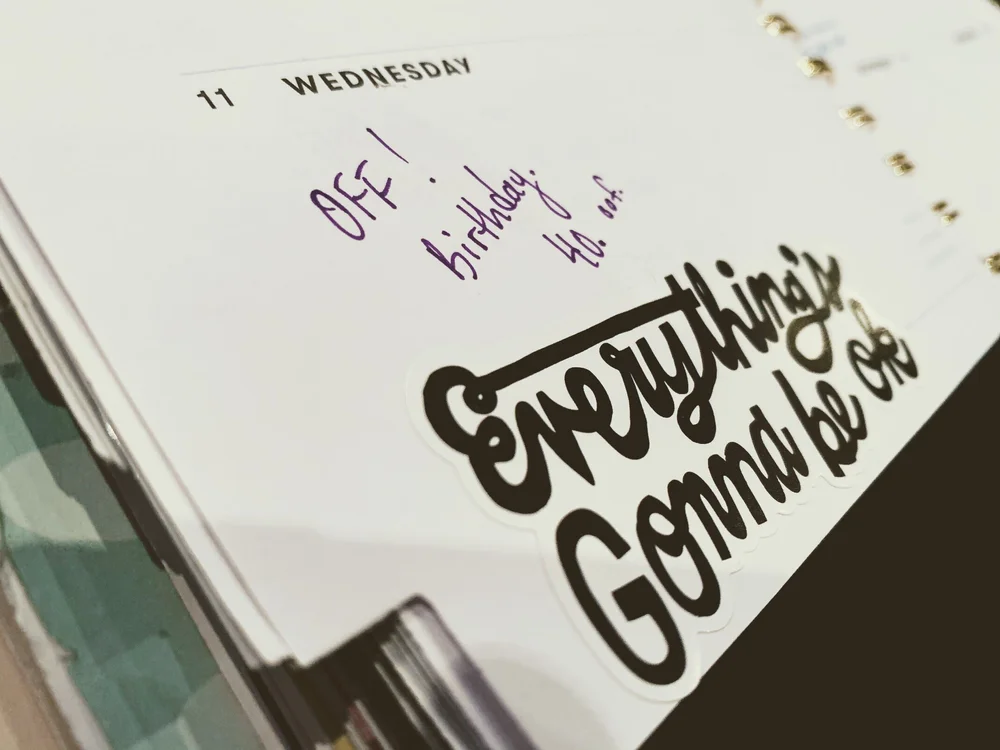 11 WEDNESDAY
OFF!
Birthday.
40. oof.
Everything's
Gonna be ok